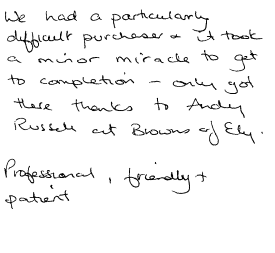 We had a particularly
difficult purchaser & it took
a minor miracle to get
to completion – only got
there thanks to Andy
Russell at Browns of Ely.
Professional, friendly +
patient